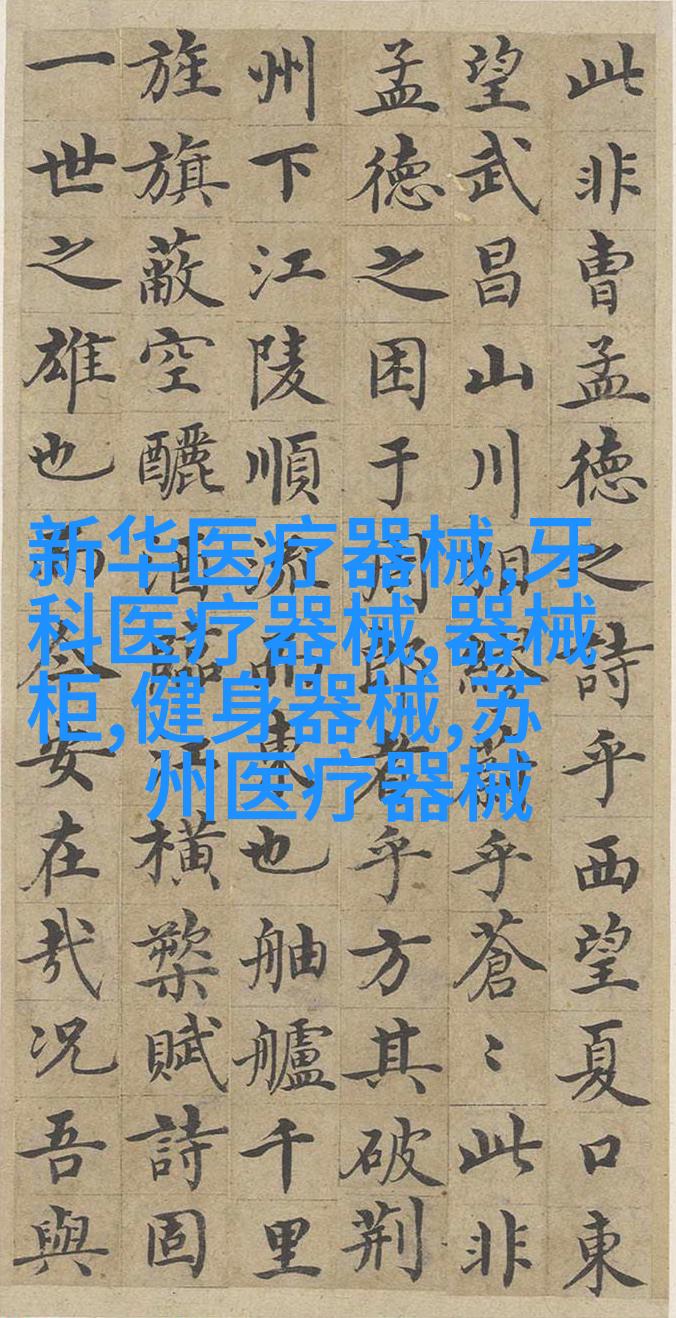 此非曹孟德之詩乎西望夏口東
望武昌山川相繆蔚乎蒼〻此非
孟德之困于周郎者乎方其破荆
州下江陵順流而東也舳艫千里
旌旗蔽空釃酒臨江横槊賦詩固
一世之雄也而今安在哉况吾與
新华医疗器械,牙
科医疗器械,器械
柜,健身器械,苏
州医疗器械